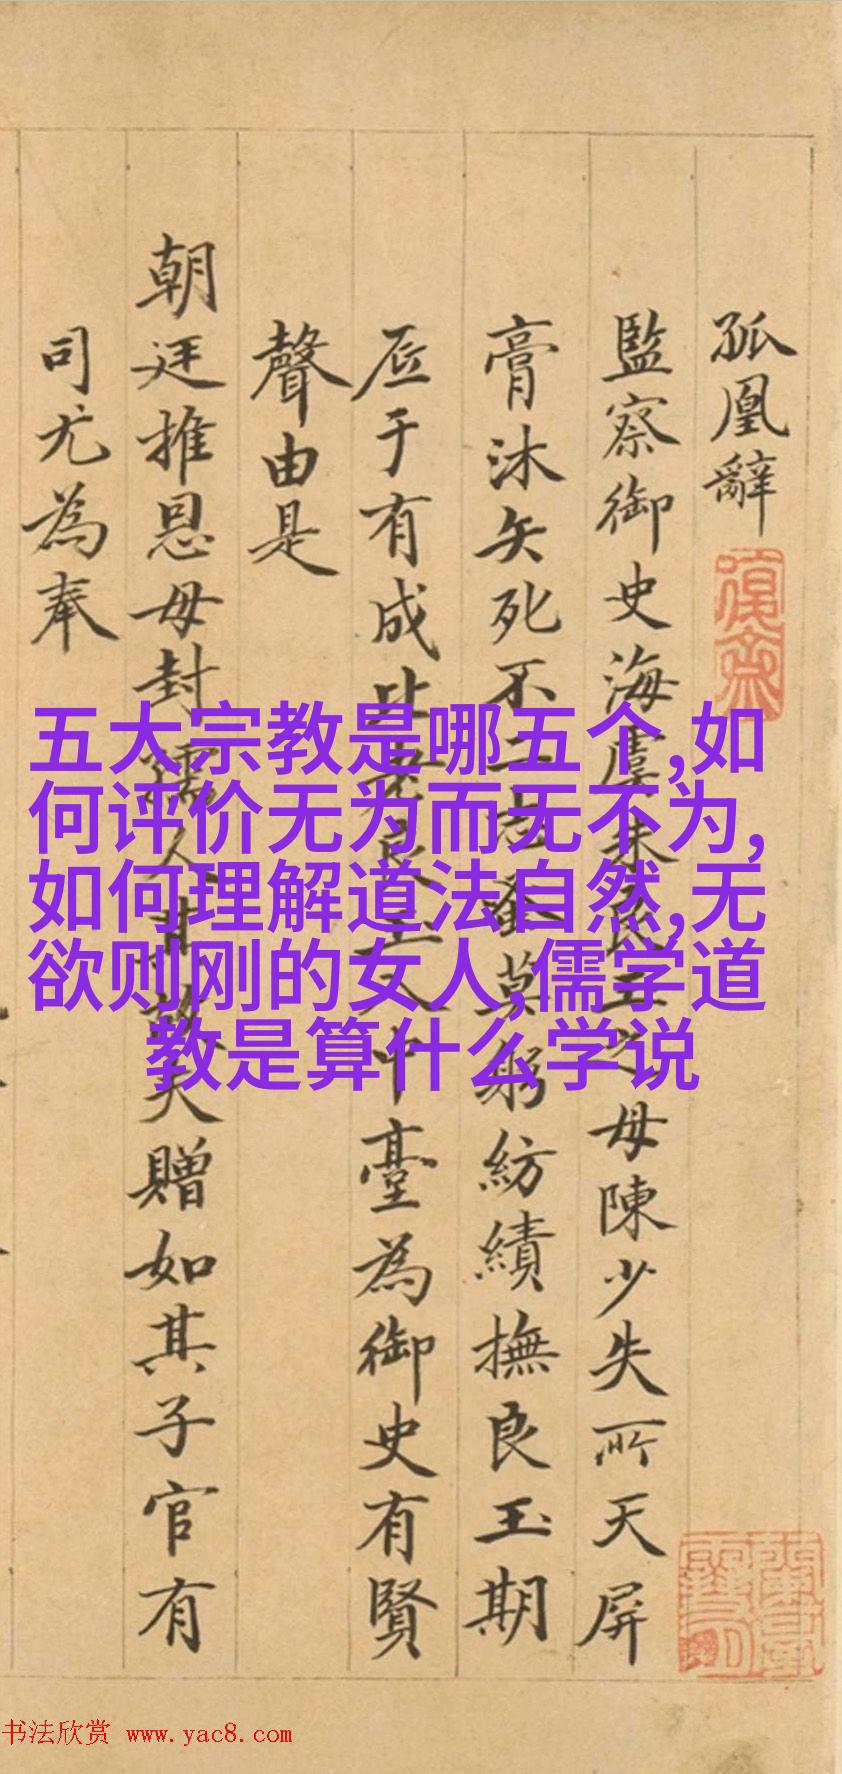 孤凰辭
監察御史海虞朱良玉之母陳少失所天屏
膏沐矢死不二志蚤莫躬紡績撫良玉期
底于有成比者良玉入中臺為御史有賢
聲由是
朝廷推恩母封孺人其故夫贈如其子官有
司尤為奉
五大宗教是哪五个,如
何评价无为而无不为,
如何理解道法自然,无
欲则刚的女人,儒学道
教是算什么学说
书法欣赏 www.yac8.com